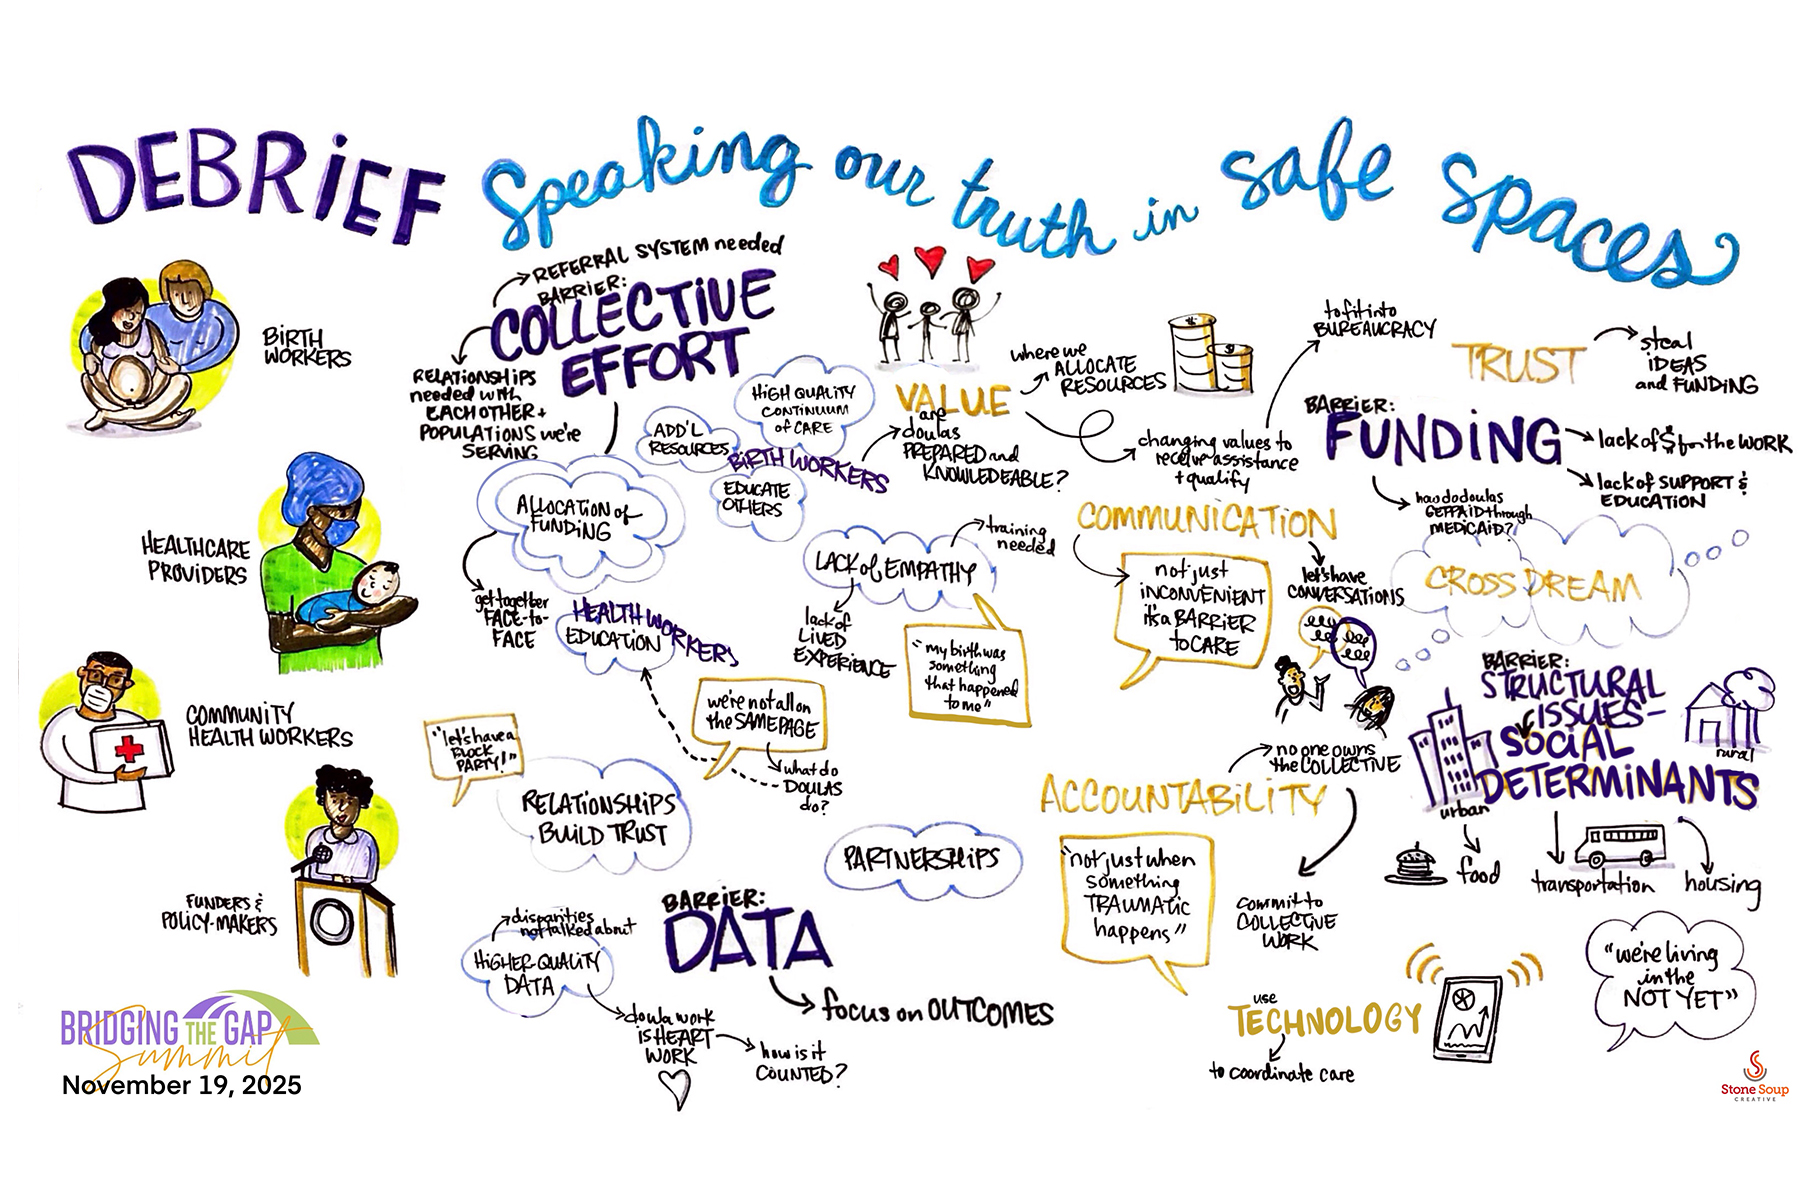 DEBRIEF Speaking our truth in safe spaces
BIRTH
WORKERS
HEALTHCARE
PROVIDERS
COMMUNITY
HEALTH WORKERS
FUNDERS &
POLICY-MAKERS
REFERRAL SYSTEM needed
BARRIER:
COLLECTIVE
EFFORT
RELATIONSHIPS
needed with
EACH OTHER +
POPULATIONS we're
SERVING
ALLOCATION of
FUNDING
get together
FACE-to-
FACE
HIGH QUALITY
CONTINUUM
of CARE
ADD'L
RESOURCES
BIRTH WORKERS
EDUCATE
OTHERS
HEALTH WORKERS
EDUCATION
we're not all on
the SAME PAGE
what do
DOULAS
do?
"let's have a
BLOCK
PARTY!"
RELATIONSHIPS
BUILD TRUST
VALUE
are
doulas
PREPARED and
KNOWLEDEABLE?
where we
ALLOCATE
RESOURCES
$
$
changing values to
receive assistance
+ qualify
to fit into
BUREAUCRACY
LACK of EMPATHY
training
needed
lack of
LIVED
EXPERIENCE
"my birth was
something
that happened
to me"
PARTNERSHIPS
BARRIER:
DATA
focus on OUTCOMES
disparities
not talked about
HIGHER-QUALITY
DATA
doula work
is HEART
WORK
how is it
COUNTED?
TRUST
steal
IDEAS
and FUNDING
BARRIER:
FUNDING
lack of $ for the WORK
lack of SUPPORT &
EDUCATION
how do doulas
GET PAID through
MEDICAID?
COMMUNICATION
not just
INCONVENIENT
it's a BARRIER
to CARE
let's have
CONVERSATIONS
CROSS DREAM
ACCOUNTABILITY
no one owns
the COLLECTIVE
"not just when
something
TRAUMATIC
happens"
commit to
COLLECTIVE
WORK
BARRIER:
STRUCTURAL
ISSUES-
SOCIAL
DETERMINANTS
urban
rural
food
transportation
housing
use
TECHNOLOGY
to coordinate care
"we're living
in the
NOT YET"
BRIDGING THE GAP
Summit
November 19, 2025
Stone Soup
CREATIVE